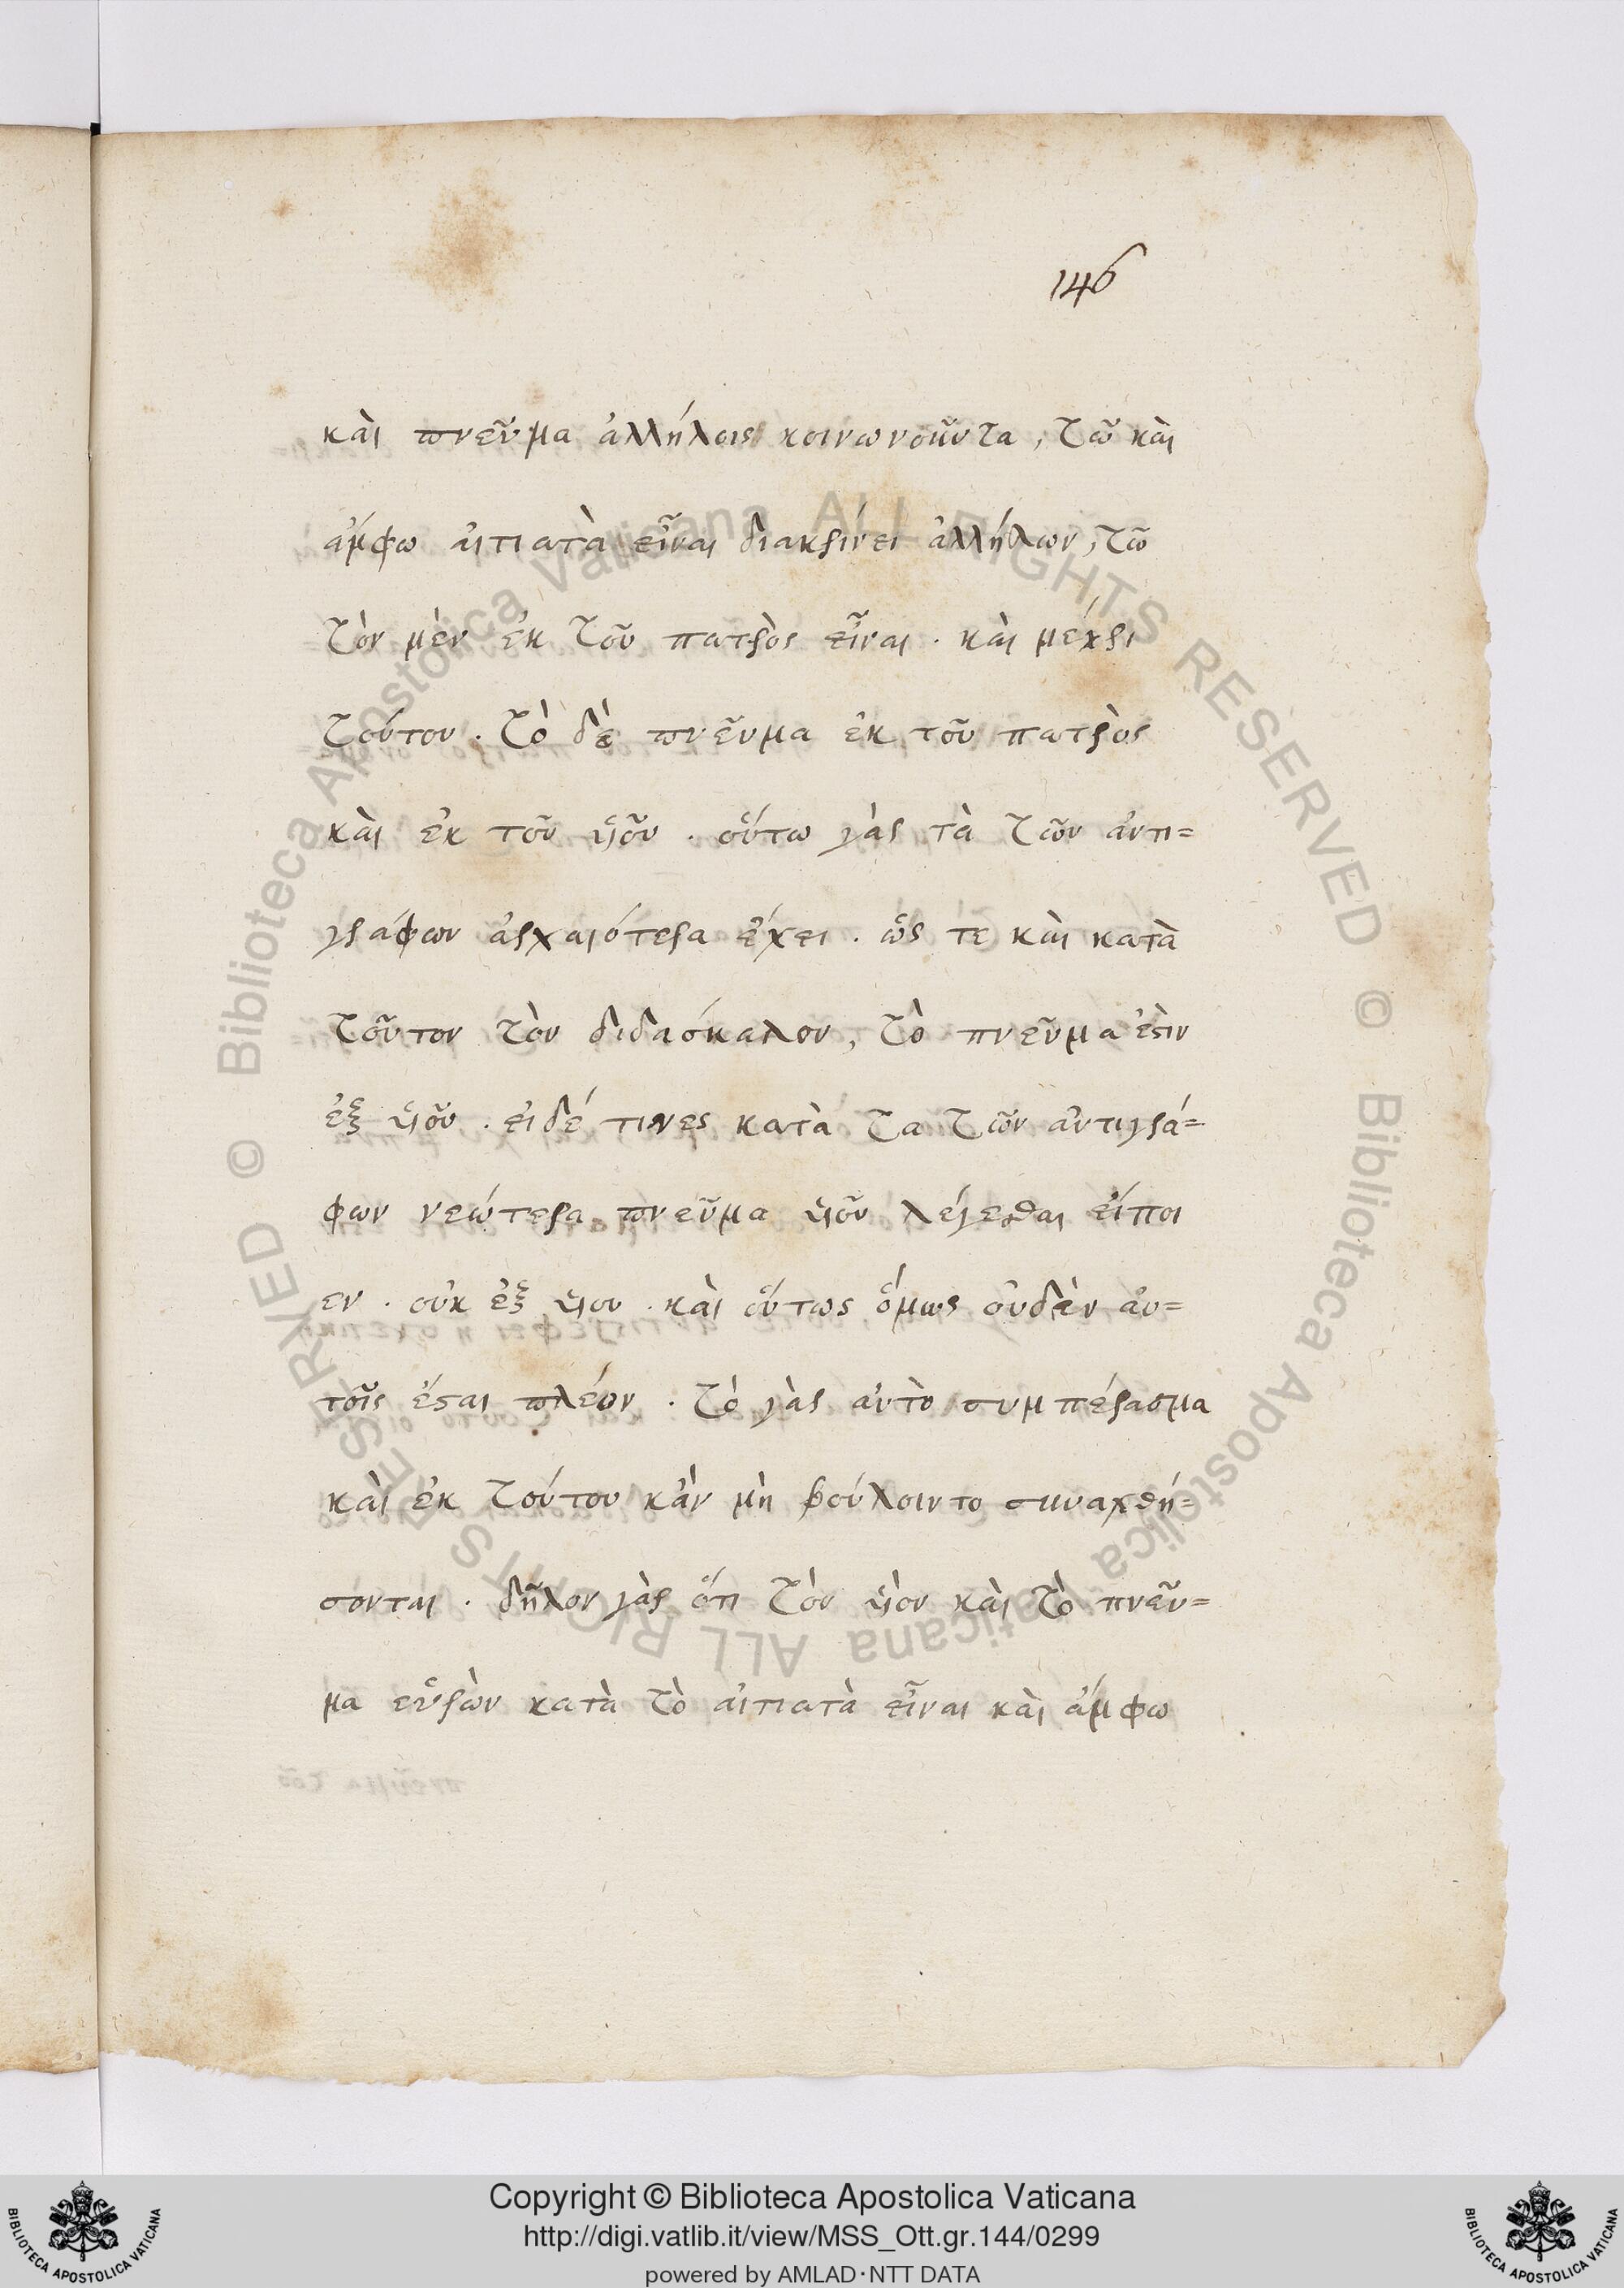 146
καὶ πνεῦμα ἀλλήλοις κοινωνοῦντα, τῶ καὶ
ἄμφω αἰτιατὰ εἶναι διακρίνει ἀλλήλων, τῶ
τὸν μὲν ἐκ τοῦ πατρὸς εἶναι · καὶ μέχρι
τούτου · τὸ δὲ πνεῦμα ἐκ τοῦ πατρὸς
καὶ ἐκ τοῦ ὑιοῦ · οὕτω γὰρ τὰ τῶν ἀντι=
γράφων ἀρχαιότερα ἔχει · ὥς τε καὶ κατὰ
τοῦτον τὸν διδάσκαλον, τὸ πνεῦμα ἐστιν
ἐξ ὑιοῦ · ει δέ τινες κατὰ τα τῶν ἀντιγρά=
φων νεώτερα πνεῦμα ὑιοῦ λέγεσθαι εἴποι
εν · οὐκ ἐξ ὑιου · καὶ οὕτως ὅμως οὐδὲν ἀυ=
τοῖς ἔσται πλέον · τὸ γὰρ ἀυτὸ συμπέρασμα
καὶ ἐκ τούτου κἂν μὴ βούλοιντο συναχθή=
σονται · δῆλον γὰρ ὅτι τὸν ὑιὸν καὶ τὸ πνεῦ=
μα εὑρὼν κατὰ τὸ αἰτιατὰ εἶναι καὶ ἄμφω
© Biblioteca Apostolica Vaticana ALL RIGHTS RESERVED
© Biblioteca Apostolica Vaticana ALL RIGHTS RESERVED
BIBLIOTECA APOSTOLICA VATICANA
Copyright © Biblioteca Apostolica Vaticana
http://digi.vatlib.it/view/MSS_Ott.gr.144/0299
powered by AMLAD·NTT DATA
BIBLIOTECA APOSTOLICA VATICANA